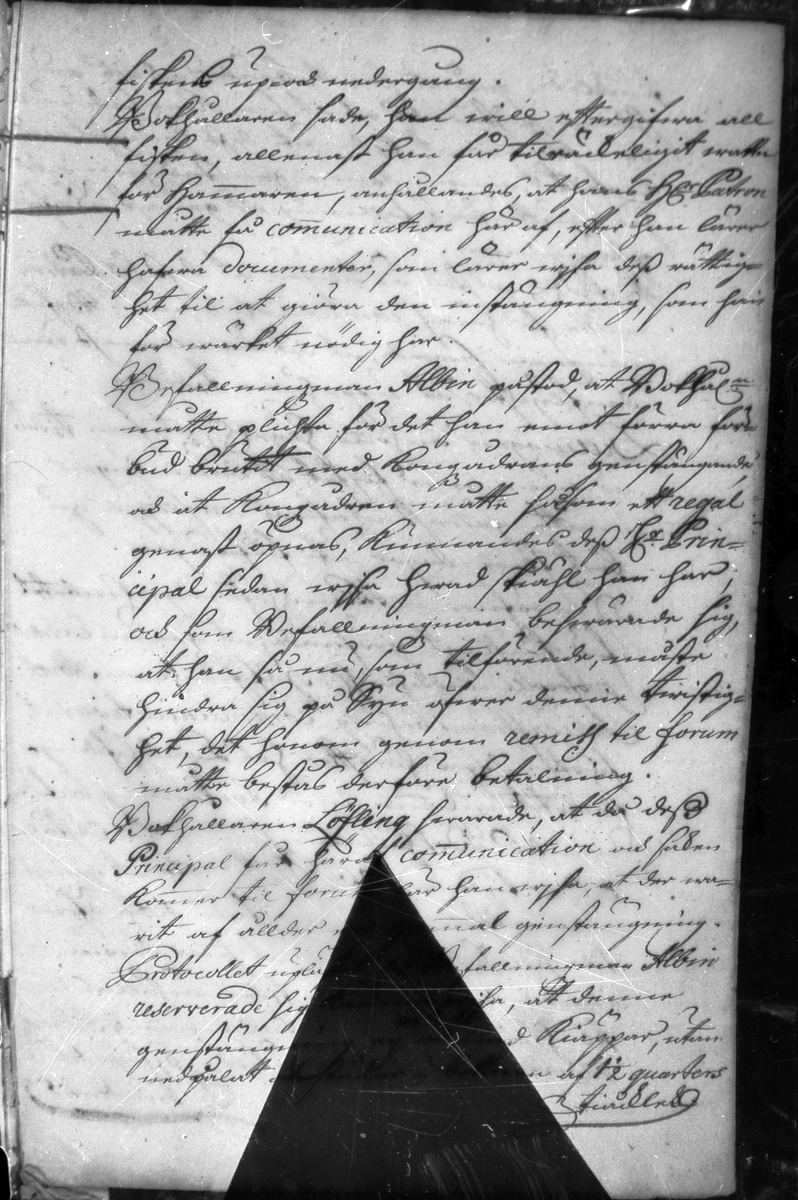 fiskens up- och nedergång.
Bokhållaren sade, han will eftergifwa all
fisken, allenast han får tilräckeligit watten
för Hammaren, anhållandes, at hans Hr Patron
måtte få communication här af, efter han lärer
hafwa documenter, som lärer wijsa dess rättig-
het til at giöra den instängning, som han
för wärket nödig har.
Befallningsman Albin påstod, at Bokhåln
måtte plichta för det han emot förra för-
bud brutit med Kongsådrans genstängande,
och at Kongsådran måtte såsom ett regal
genast öpnas, kunnandes dess Hr Prin-
cipal sedan wijsa hwad skiähl han har,
och som Befallningsman beswärade sig,
at han så nu, som tilförende, måste
hindra sig på Syn öfwer denne twistig-
het, det honom genom remiss til forum
måtte bestås derföre betalning.
Bokhållaren Löfling swarade, at då dess
Principal får häraf communication och saken
kommer til forum lär han wijsa, at der wa-
rit af ållder gammal genstängning.
Protocollet uplästes Befallningsman Albin
reserverade sig wijsa, at denne
genstängning med Kiäppar, utan
nedpålat af 1½ quarters
tiocklek